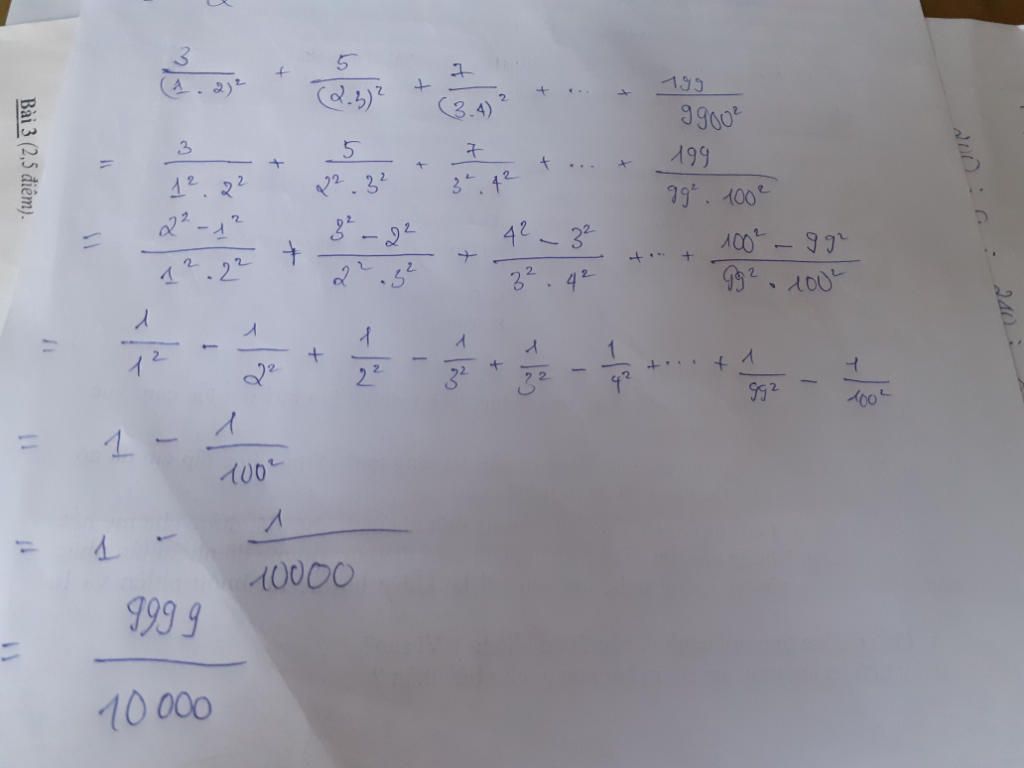 3/(1.2)² + 5/(2.3)² + 7/(3.4)² + ... + 199/9900²
= 3/1².2² + 5/2².3² + 7/3².4² + ... + 199/99².100²
= 2²-1²/1².2² + 3²-2²/2².3² + 4²-3²/3².4² + ... + 100²-99²/99².100²
= 1/1² - 1/2² + 1/2² - 1/3² + 1/3² - 1/4² + ... + 1/99² - 1/100²
= 1 - 1/100²
= 1 - 1/10000
= 9999/10000
Bài 3 (2,5 điểm).